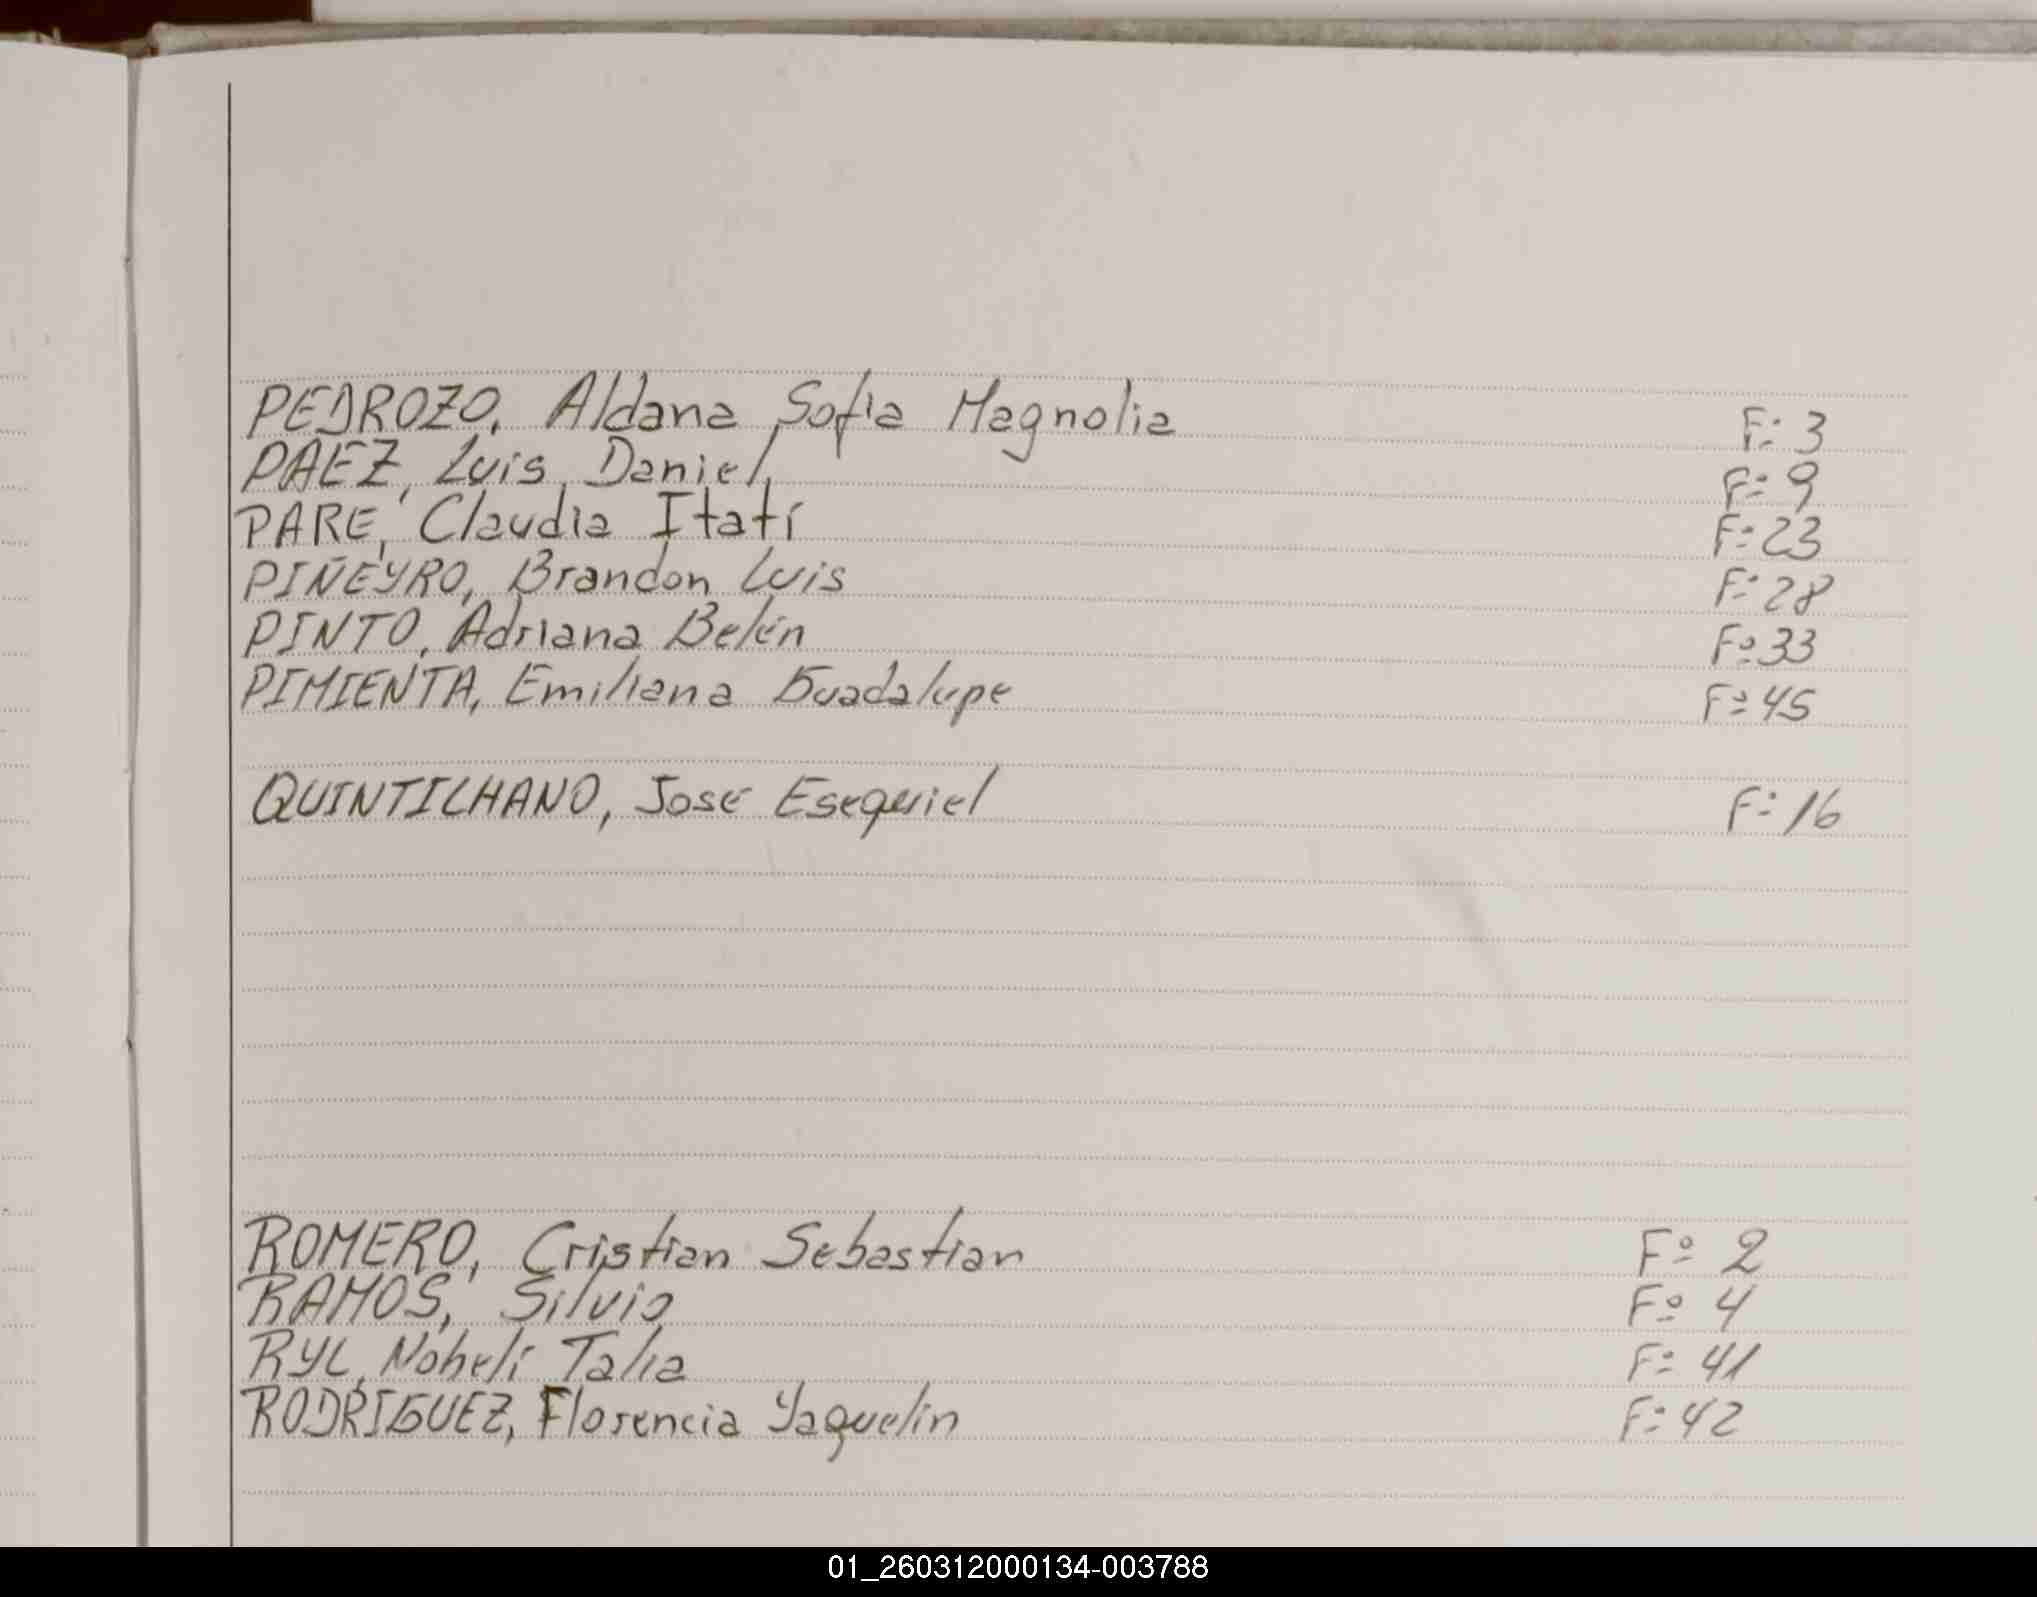 PEDROZO, Aldana Sofia Magnolia Fº 3
PAEZ, Luis Daniel Fº 9
PARE, Claudia Itatí Fº 23
PIÑEYRO, Brandon Luis Fº 28
PINTO, Adriana Belén Fº 33
PIMIENTA, Emiliana Guadalupe Fº 45
QUINTILHANO, José Esequiel Fº 16
ROMERO, Cristian Sebastian Fº 2
RAMOS, Silvio Fº 4
RYL, Nohelí Talia Fº 41
RODRIGUEZ, Florencia Yaquelin Fº 42
01_260312000134-003788